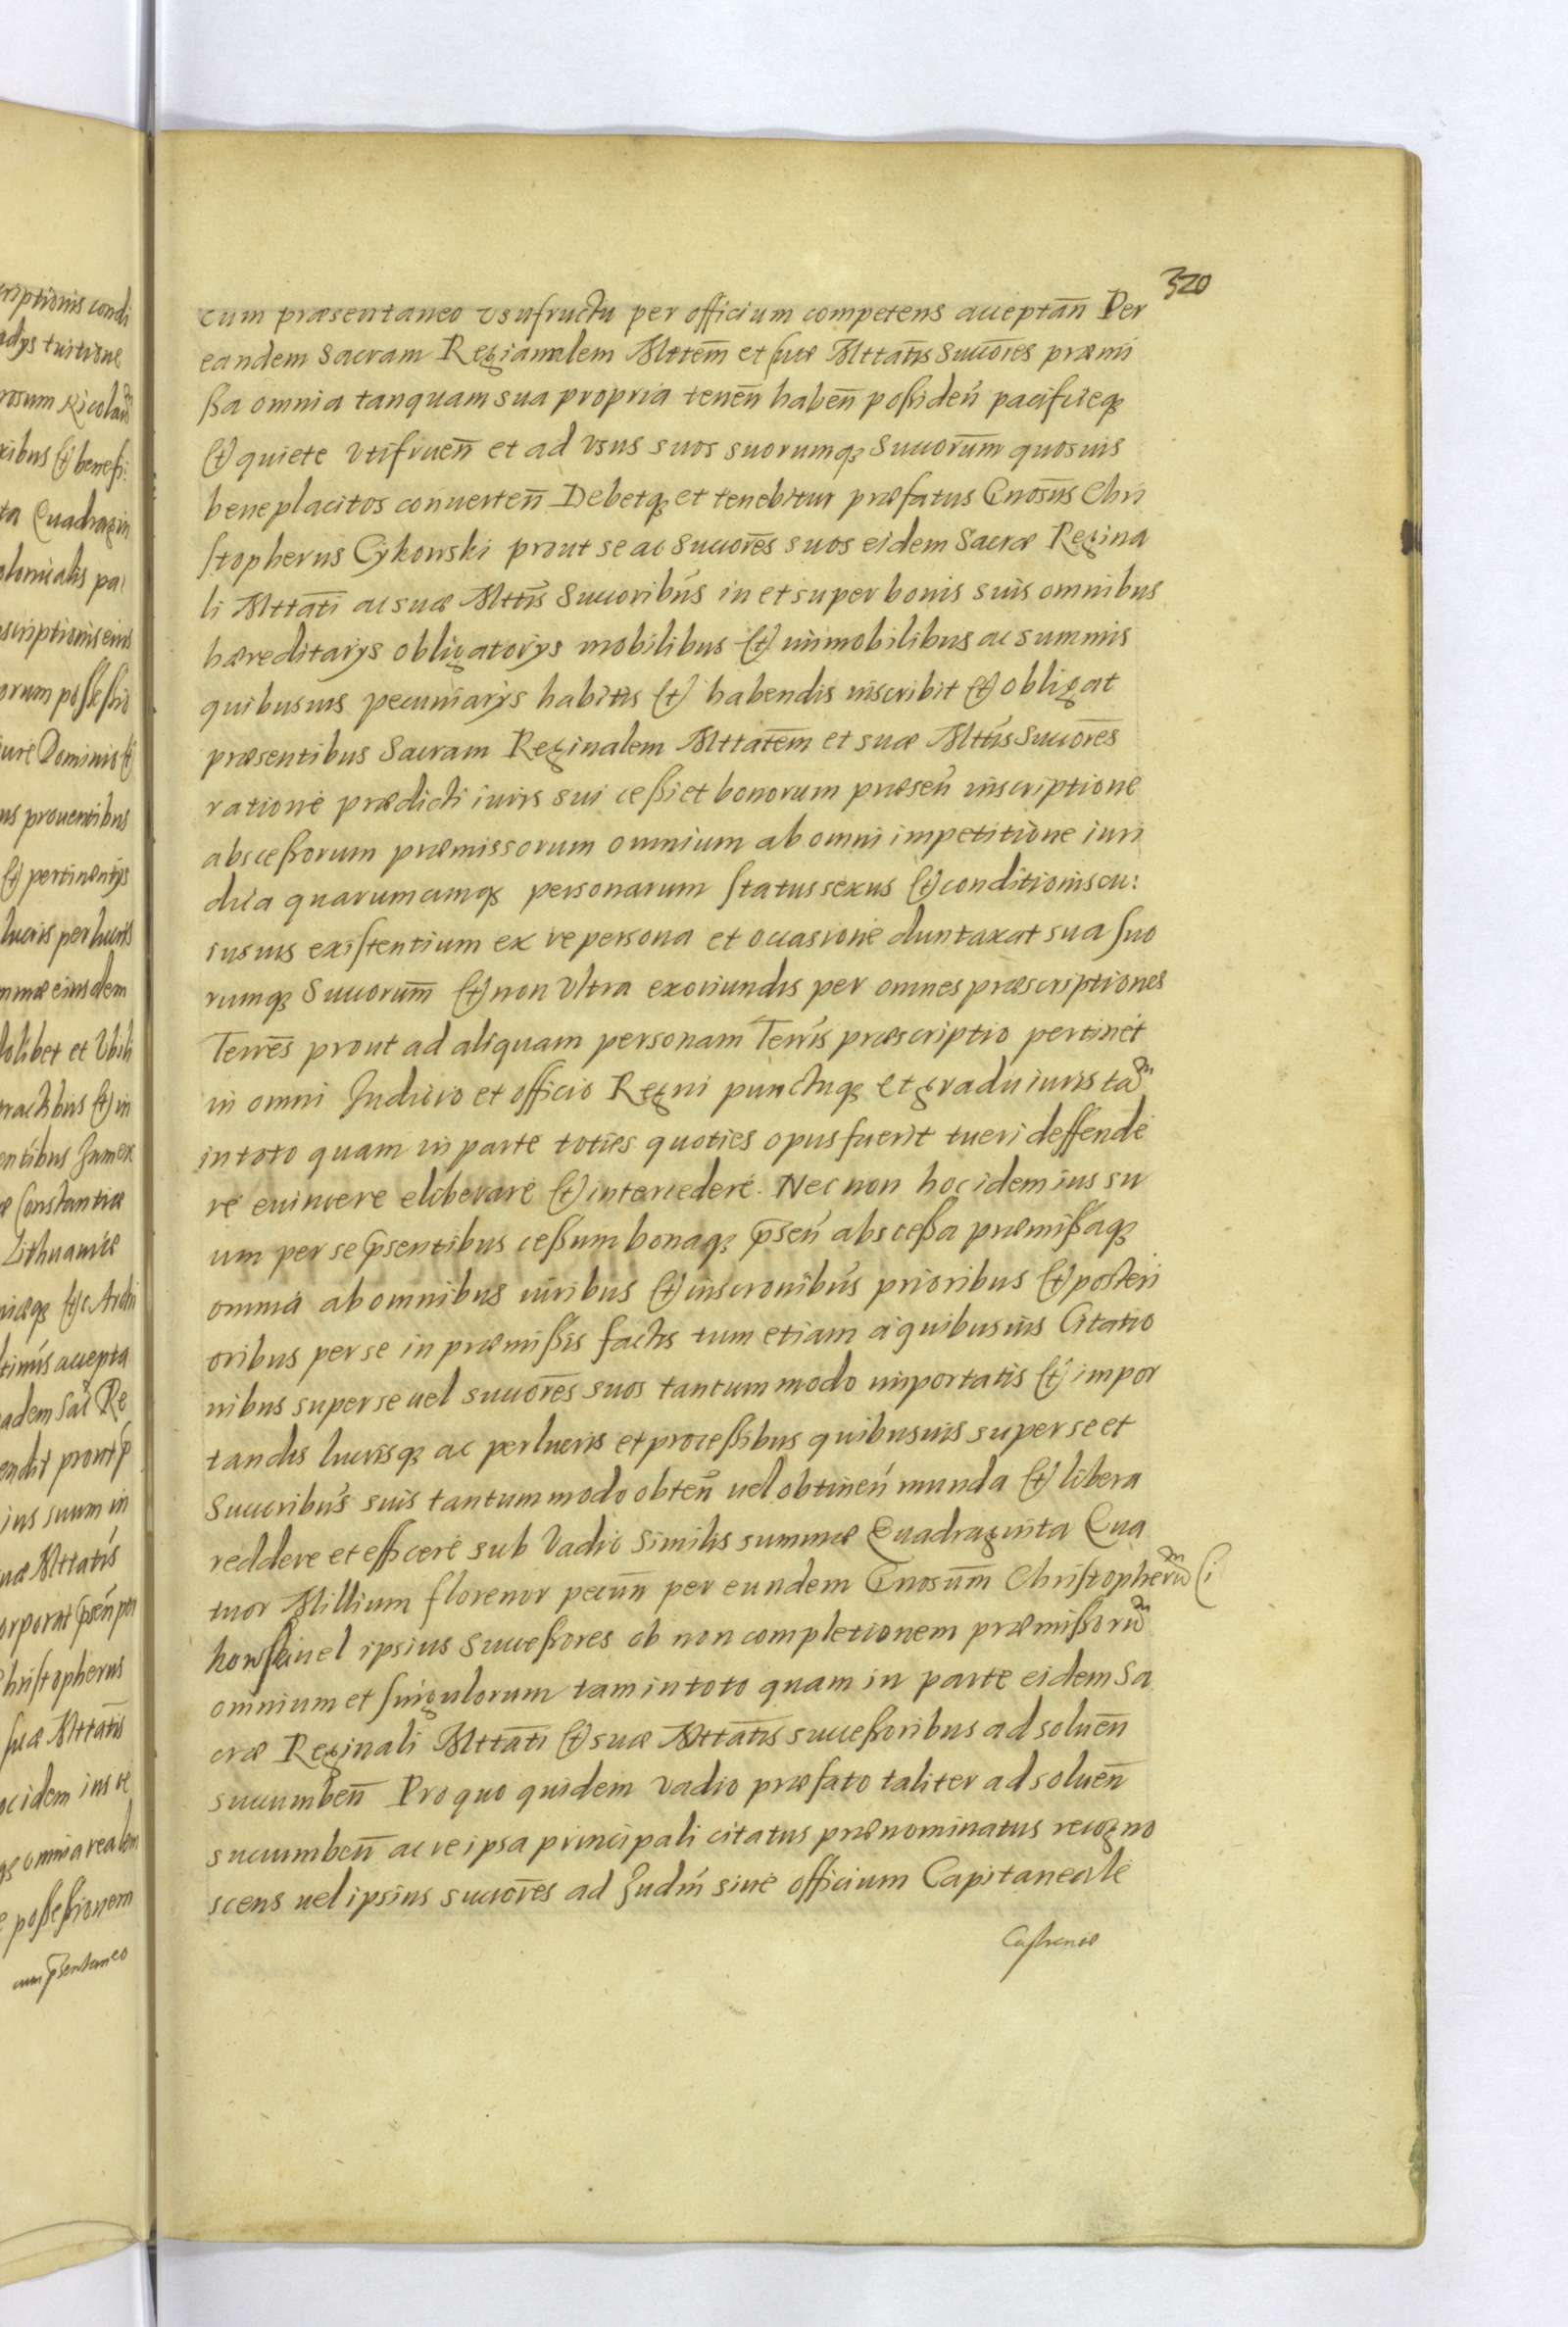 320
cum præsentaneo vsufructu per officium competens acceptan̄ Per
eandem Sacram Reginalem Mttem̄ et suæ Mttatis Succores præmi
ßa omnia tanquam sua propria tenen̄ haben̄ poßiden̄ pacificeq;
(et) quiete vtifruen̄ et ad vsus suos suorumq; Succorum̄ quosuis
beneplacitos conuerten̄ Debetq; et tenebitur præfatus Gnosus̄ Chri
stopherus Cykowski prout se ac Succores̄ suos eidem Sacræ Regina
li Mttati̅ ac suæ Mttis̄ Succoribus̄ in et super bonis suis omnibus
hæreditarijs obligatorijs mobilibus (et) immobilibus ac summis
quibusuis pecuniarijs habitis (et) habendis inscribit (et) obligat
præsentibus Sacram Reginalem Mttatem̄ et suæ Mttis̄ Succores̄
ratione prædicti iuris sui ceßi et bonorum præsen̄ inscriptione
absceßorum præmissorum omnium ab omni impetitione iuri
dica quarumcunq; personarum status sexus (et) conditionis cu:
iusuis existentium ex re persona et occasione duntaxat sua suo
rumq; Succorum̄ (et) non Vltra exoriundis per omnes præscriptiones
Terres̄ prout ad aliquam personam Terris̄ præscriptio pertinet
in omni Judicio et officio Regni punctuq; et gradu iuris tam
in toto quam in parte toties quoties opus fuerit tueri deffende
re euincere eliberare (et) intercedere. Nec non hoc idem ius su
um per se p̄sentibus ceßum bonaq; p̄sen̄ absceßa præmißaq;
omnia ab omnibus iuribus (et) inscronibus̄ prioribus (et) posteri
oribus per se in præmißis factis tum etiam a quibusuis Citatio
nibus super se uel succores̄ suos tantummodo importatis (et) impor
tandis lucrisq; ac perlucris et proceßibus quibusuis super se et
Succoribus̄ suis tantummodo obten̄ uel obtinen̄ munda (et) libera
reddere et efficere sub Vadio similis summæ Quadraginta Qua
tuor Millium florenor pecun̄ per eundem Gnosum̄ Christopherum Ci
howski uel ipsius Succeßores ob non completionem præmißorum
omnium et singulorum tam in toto quam in parte eidem Sa
cræ Reginali Mttati̅ (et) suæ Mttatis̄ succeßoribus ad soluen̄
succumben̄ Pro quo quidem vadio præfato taliter ad soluen̄
succumben̄ ac re ipsa principali citatus prænominatus recogno
scens uel ipsius succores̄ ad Judin̄ siue officium Capitaneale
Castrense